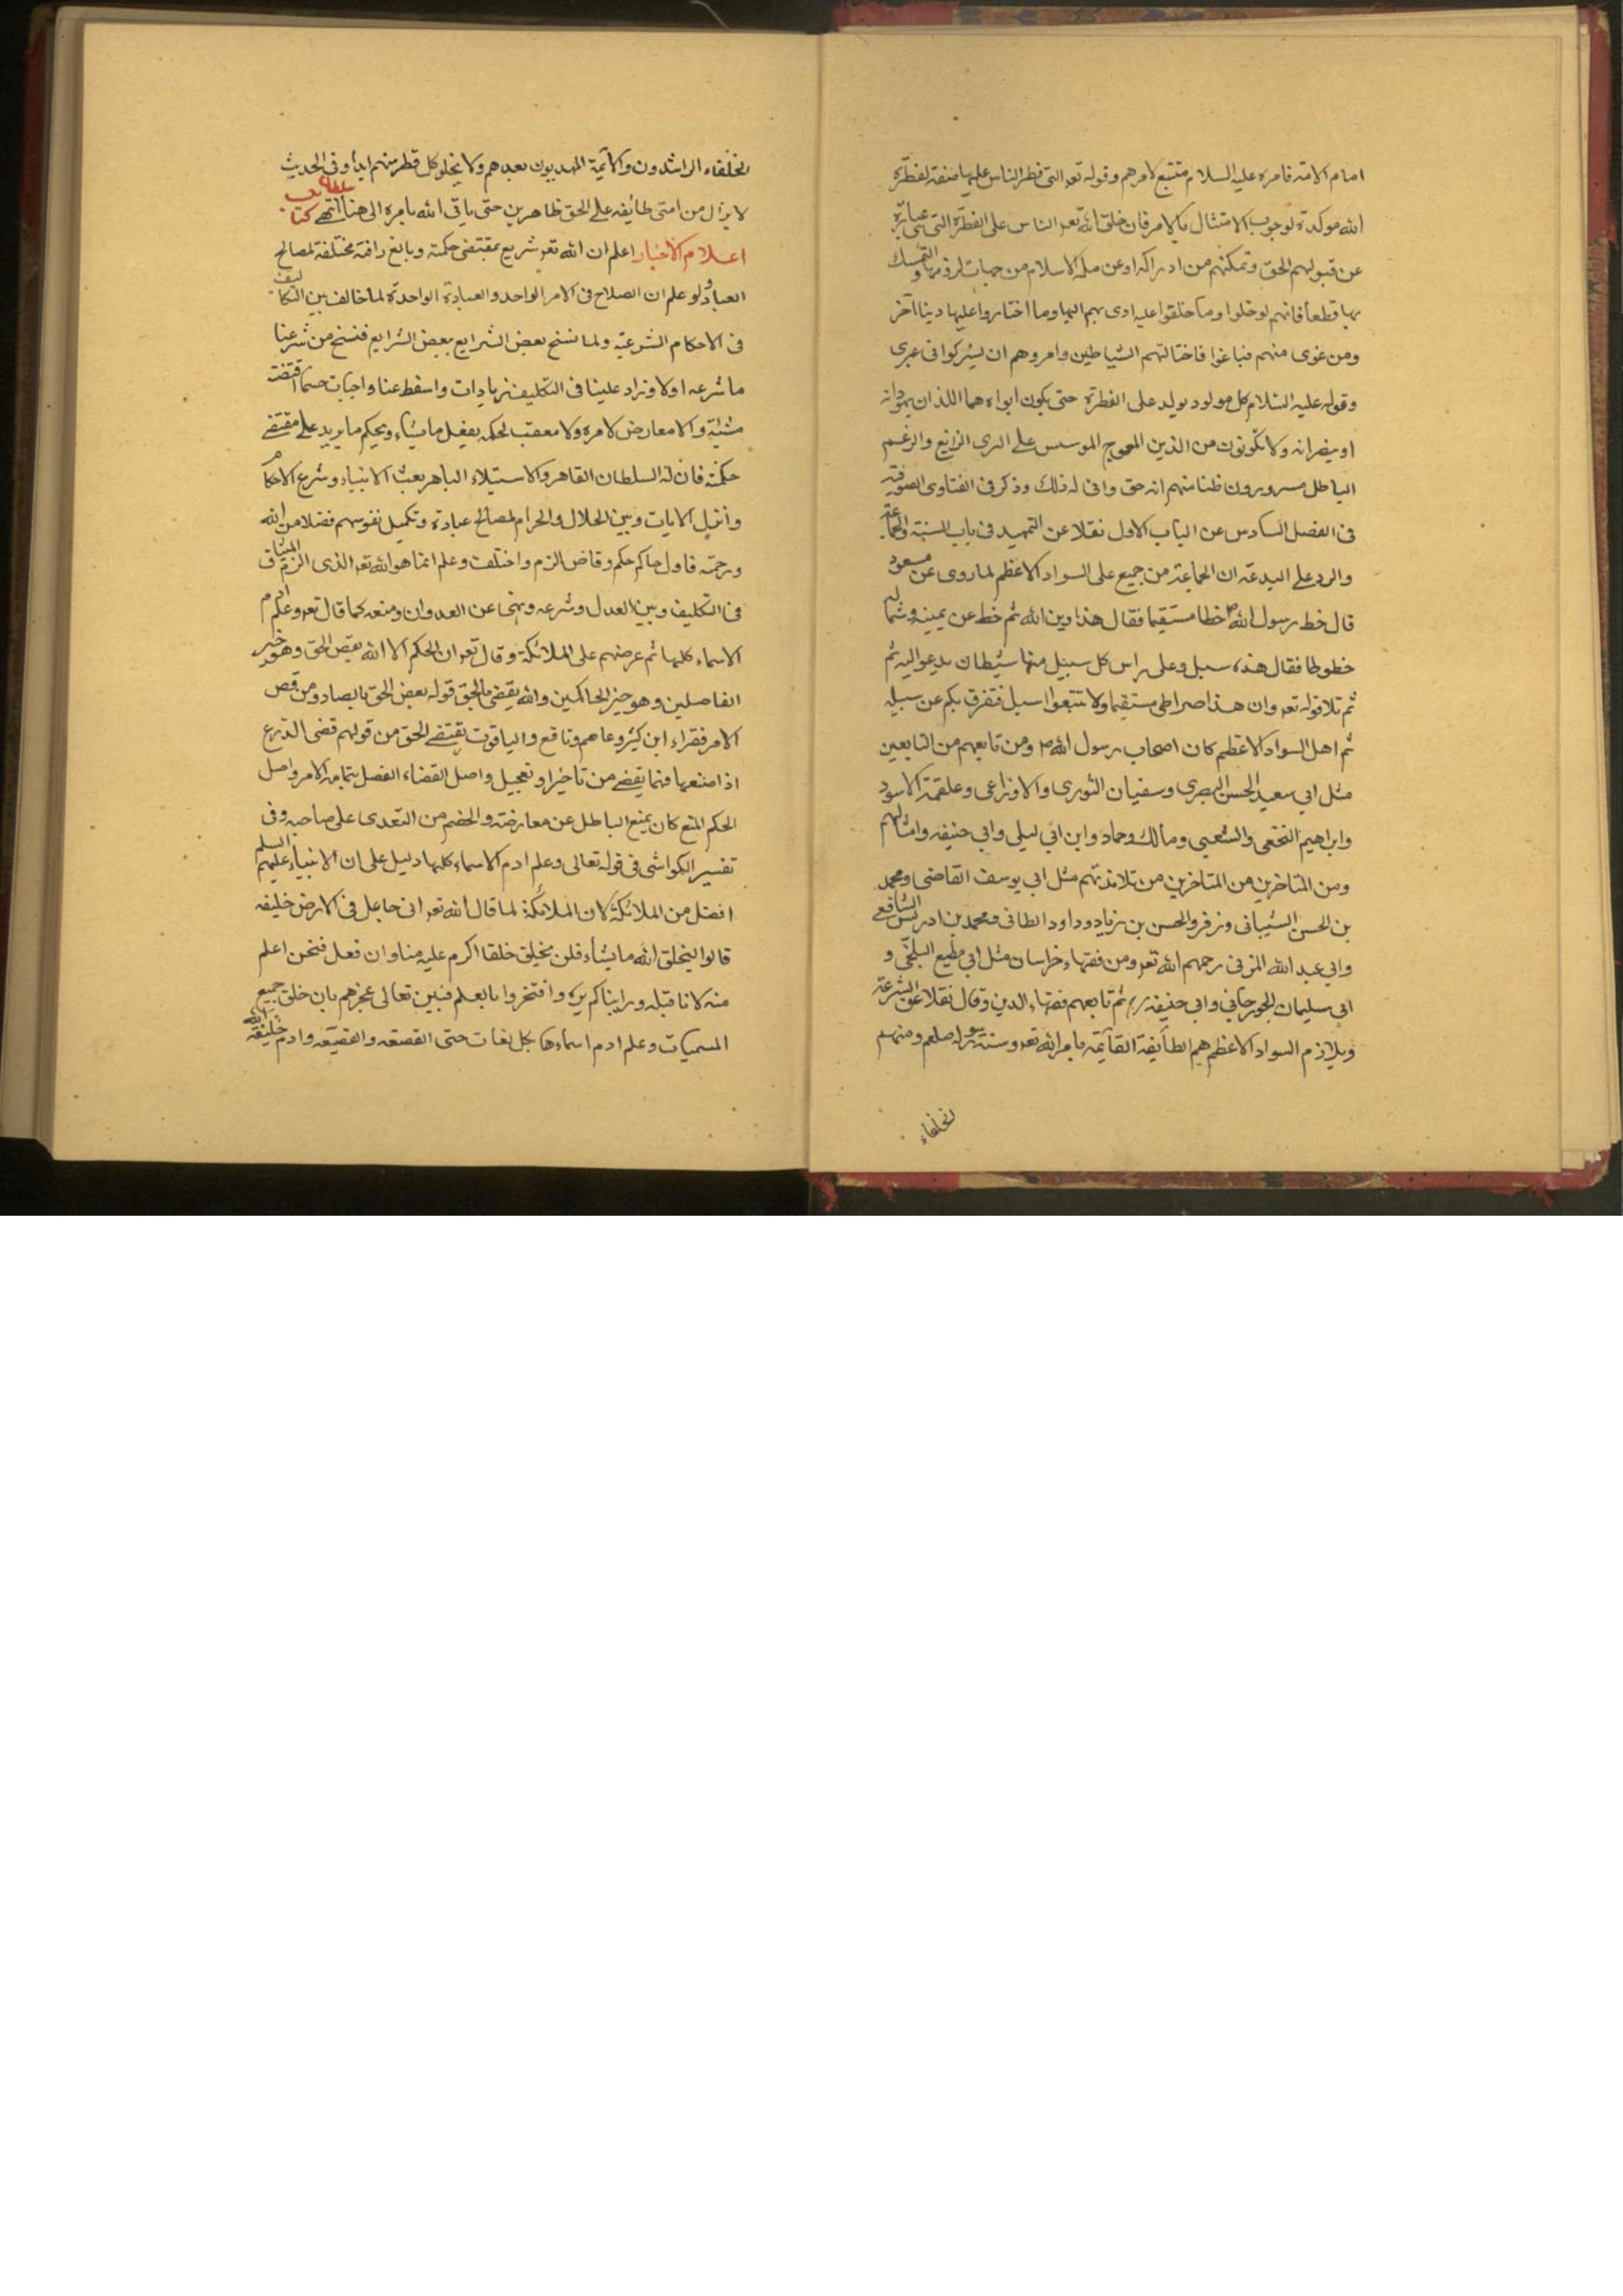 امام الامة فامره عليه السلام متتبع لامرهم وقوله تعه التى فطر الناس عليها صنفة لفطرة
الله موكدة لوجوب الامتثال بالامر فان خلق الله تعه الناس على الفطرة التى هى عبارة
عن قبولهم الحق وتمكنهم من ادراكه اوعن ملة الاسلام من جهات لزومها والتمسك
بها قطعا فانهم لوخلوا وما خلقوا عليه ادى بهم اليها وما اختاروا عليها دينا آخر
ومن غوى منهم فباغوا فاختالتهم الشياطين وامروهم ان يشركوا فى
وقوله عليه السلام كل مولود يولد على الفطرة حتى يكون ابواه هما اللذان يهودانه
او ينصرانه ولا تكونون من الذين المعوج الموسس على الرى الزايغ والزعم
الباطل مسرورون ظنا منهم انه حق وانى له ذلك وذكر فى الفتاوى الصوفية
فى الفصل السادس عن الباب الاول نقلا عن التمهيد فى باب السنة والجماعة
والرد على البدعة ان الجماعة من جميع على السواد الاعظم لما روى عن مسعود
قال خط رسول الله ص خطا مستقيما فقال هذا دين الله ثم خط عن يمينه وشماله
خطوطا فقال هذه سبل وعلى راس كل سبيل منها شيطان يدعو اليه ثم
ثم تلا قوله تعه وان هذا صراطى مستقيما ولا تتبعوا سبل فتفرق بكم عن سبيله
ثم اهل السواد الاعظم كان اصحاب رسول الله ص ومن تابعهم من التابعين
مثل ابى سعيد الحسن البصرى وسفيان الثورى والاوزاعى وعلقمة الاسود
وابراهيم النخعى والشعبى ومالك وحماد وابن ابى ليلى وابى حنيفه وامثالهم
ومن المتاخرين من المتاخرين من تلامذتهم مثل ابى يوسف القاضى ومحمد
بن الحسن الشيبانى وزفر والحسن بن زياد وداود الطائى ومحمد بن ادريس الشافعى
وابى عبد الله المزنى رحمهم الله تعه ومن فقهاء خراسان مثل ابى مطيع البلخى و
ابى سليمان الجورجانى وابى حنيفه رح ثم تابعهم فقهاء الدين وقال نقلا عن الشرعة
ويلازم السواد الاعظم هم الطآيفة القآئمة بامر الله تعه وسنة رسوله صلعم ومنهم
الخلفاء
الخلفاء الراشدون والآئمة المهديون بعدهم ولا يخلو كل قطر منهم ابدا وفى الحديث
لا يزال من امتى طائفه على الحق ظاهرين حتى ياتى الله بامره الى هنا انتهى كتاب
اعلام الاخبار اعلم ان الله تعه شريع بمقتضى حكمته وبالغ رافته مختلفة لمصالح
العباد ولو علم ان الصلاح فى الامر الواحد والعبادة الواحدة لما خالف بين التكاليف
فى الاحكام الشرعية ولما نسخ بعض الشرايع بعض الشرايع فنسخ من شرعنا
ما شرعه اولا وزاد علينا فى التكليف زيادات واسقط عنا واجبات حسما اقتضته
مشيته والا معارض لامره ولا معقب لحكمه يفعل ما يشاء ويحكم ما يريد على مقتضى
حكمته فان له السلطان القاهر والاستيلاء الباهر بعث الانبياء وشرع الاحكام
وانزل الايات وبين الحلال والحرام لمصالح عباده وتكميل نفوسهم فضلا من الله
ورحمة فاول حاكم حكم وقاض الزم واختلفت وعلم انما هو الله تعه الذى الزم الميثاق
فى التكليف وبين العدل وشرعه ونهى عن العدوان ومنعه كما قال تعه وعلم ادم
الاسماء كلها ثم عرضهم على الملائكة وقال تعه ان الحكم الا الله يقص الحق وهو خير
الفاصلين وهو خير الحاكمين والله يقضى بالحق قوله يعض الحق بالصاد ومن قص
الامر فقراء ابن كثير وعاصم ونافع والباقون يقتضى الحق من قولهم قضى الدرع
اذا صنعها فيما يقضى من تاخير او تعجيل واصل القضاء الفصل بتمامه الامر واصل
الحكم المنع كان يمنع الباطل عن معارضته والخصم من التعدى على صاحبه وفى
تفسير الكواشى فى قوله تعالى وعلم ادم الاسماء كلها دليل على ان الانبياء عليهم السلم
افضل من الملائكة لان الملائكة لما قال الله تعه انى جاعل فى الارض خليفه
قالوا ليخلق الله ما يشاء فلن يخلق خلقا اكرم عليه منا وان فعل فنحن اعلم
منه لانا قبله وراينا كم يره وافتخروا بالعلم فبين تعالى عجزهم بان خلق جميع
المسميات وعلم ادم اسماءها بكل لغات حتى القصعه والقصيعه وادم خليفة الله